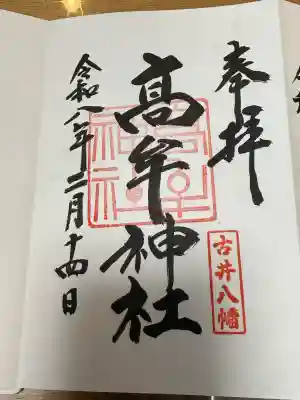 奉拝
古井八幡
高牟神社
令和八年二月十四日